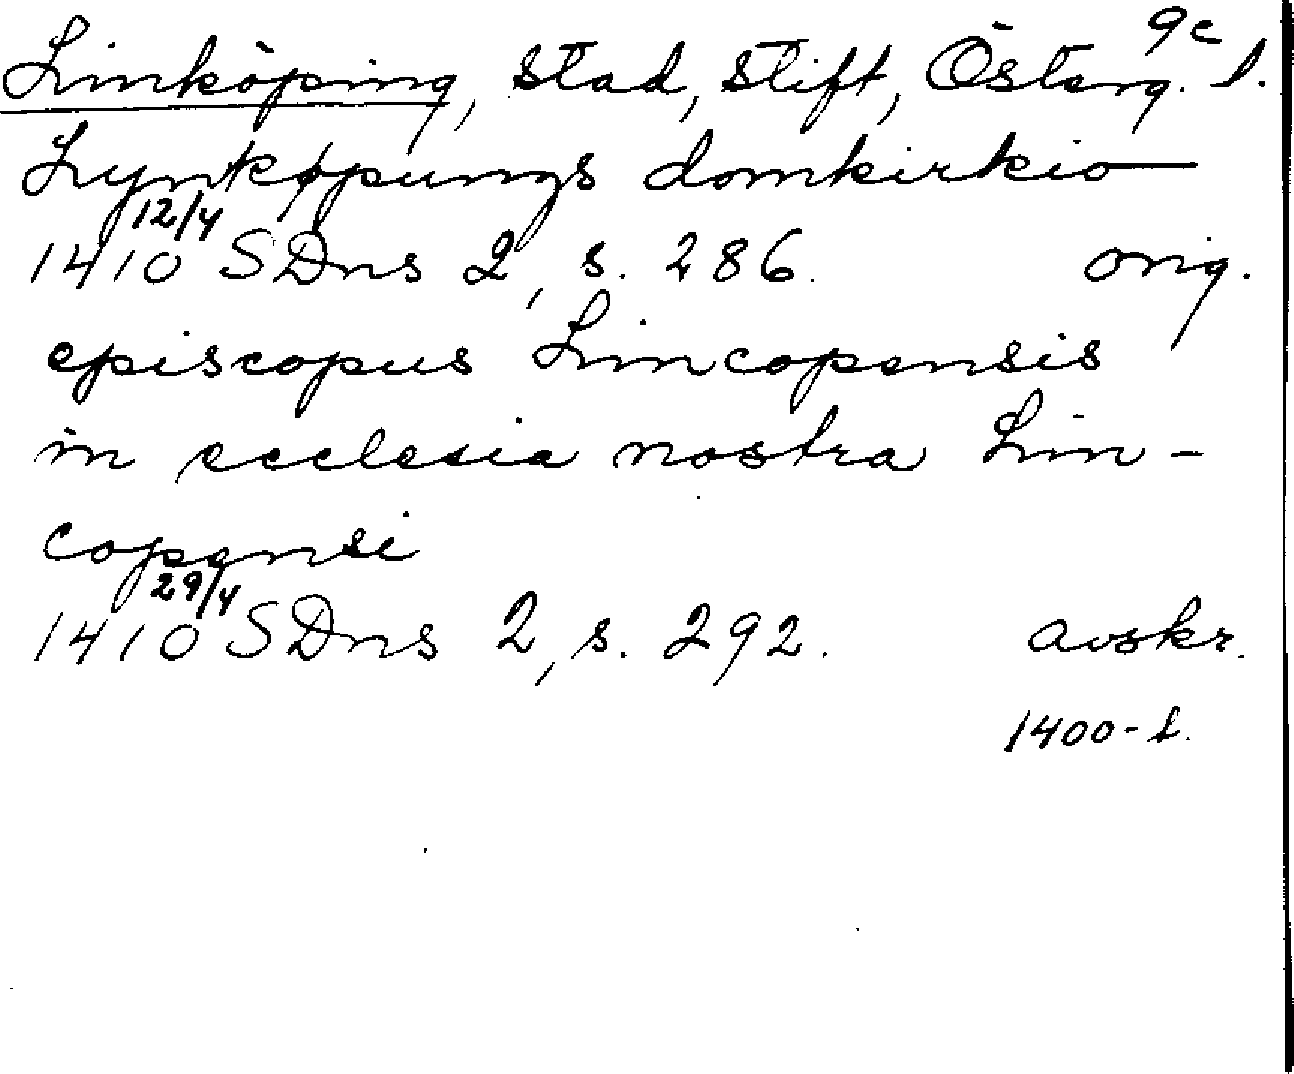 9c
Linköping, stad, stift, Österg. l.
Lynkøpungs domkirkio
12/4
1410 SDns 2, s. 286. orig.
episcopus Lincopensis
in ecclesia nostra Lin-
copensi
29/4
1410 SDns 2, s. 292. avskr.
1400-t.